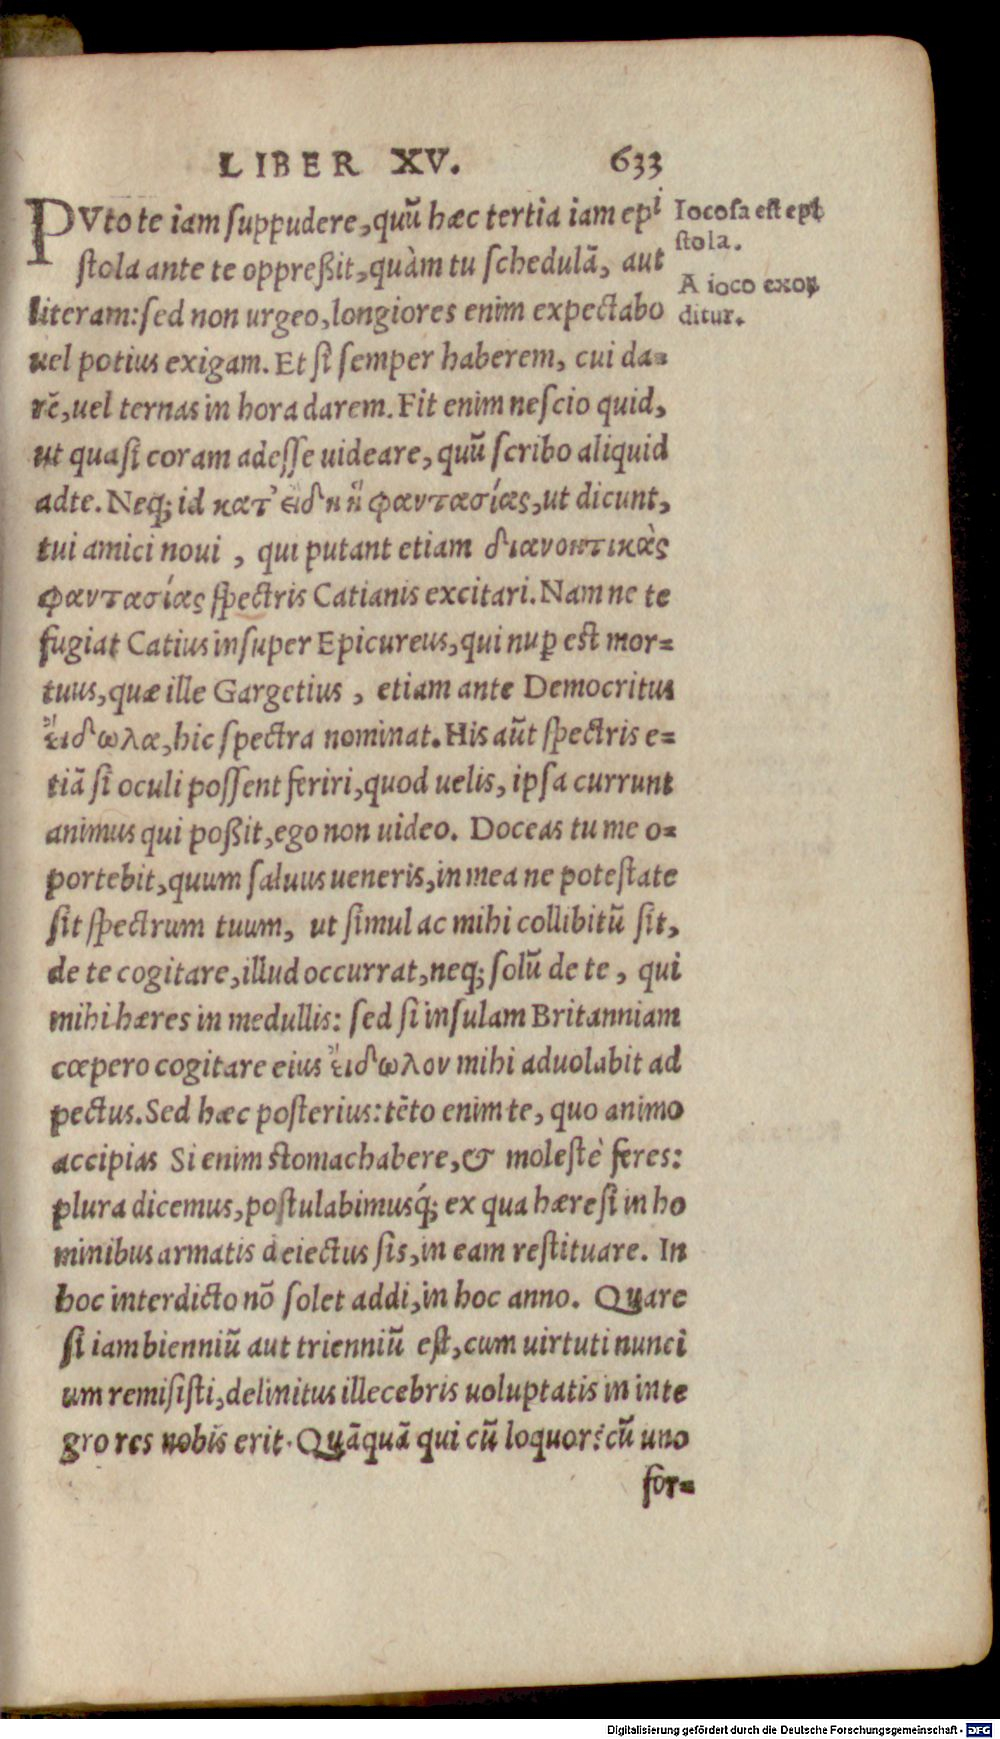 LIBER XV. 633
PVto te iam ſuppudere, quū hæc tertia iam epi
ſtola ante te oppreßit, quàm tu ſchedulā, aut
literam: ſed non urgeo, longiores enim expectabo
uel potius exigam. Et ſi ſemper haberem, cui da=
rē, uel ternas in hora darem. Fit enim neſcio quid,
ut quaſi coram adeſſe uideare, quū ſcribo aliquid
adte. Neq; id κατ' εἰδ κἢ φαντασίας, ut dicunt,
tui amici noui, qui putant etiam διανοητικὰς
φαντασίας ſpectris Catianis excitari. Nam ne te
fugiat Catius inſuper Epicureus, qui nuꝑ est mor=
tuus, quæ ille Gargetius, etiam ante Democritus
εἴδωλα, hic ſpectra nominat. His aūt ſpectris e=
tiā ſi oculi poſſent feriri, quod uelis, ipſa currunt
animus qui poßit, ego non uideo. Doceas tu me o=
portebit, quum ſaluus ueneris, in mea ne poteſtate
ſit ſpectrum tuum, ut ſimul ac mihi collibitū ſit,
de te cogitare, illud occurrat, neq; ſolū de te, qui
mihi hæres in medullis: ſed ſi inſulam Britanniam
cœpero cogitare eius εἴδωλον mihi aduolabit ad
pectus. Sed hæc poſterius: tēto enim te, quo animo
accipias Si enim ſtomachabere, & moleſtè feres:
plura dicemus, poſtulabimusq́; ex qua hæreſi in ho
minibus armatis deiectus ſis, in eam reſtituare. In
hoc interdicto nō ſolet addi, in hoc anno. Quare
ſi iam bienniū aut trienniū eſt, cum uirtuti nunci
um remiſiſti, delinitus illecebris uoluptatis in inte
gro res nobis erit. Quāquā qui cū loquor? cū uno
for=
Iocoſa eſt epi
ſtola.
A ioco exor
ditur.
Digitalisierung gefördert durch die Deutsche Forschungsgemeinschaft - DFG